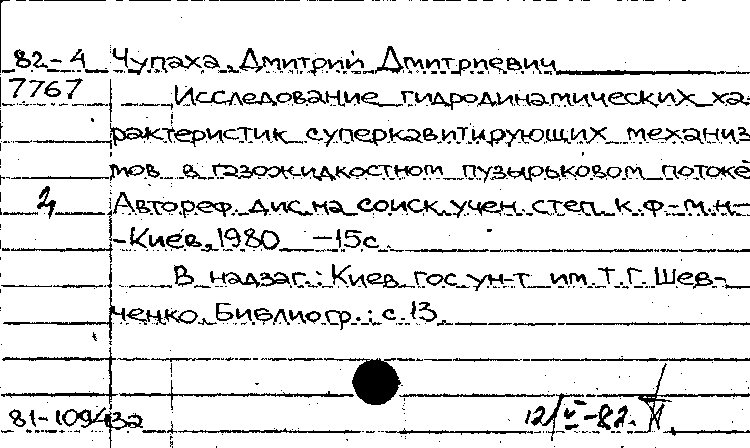 82-4 Чупаха, Дмитрий Дмитриевич
7767 Исследование гидродинамических ха-
рактеристик суперкавитирующих механиз
мов в газожидкостном пузырьковом потоке
2, Автореф. дис. на соиск. учен. степ. к.ф-м.н.-
-Киев, 1980 -15с.
В надзаг.: Киев. гос. ун-т им. Т.Г. Шев-
ченко. Библиогр.: с. 13.
81-109432
12/V-82.